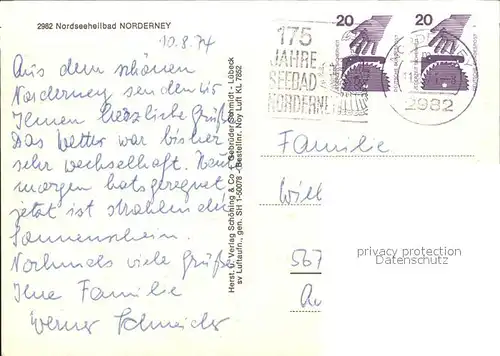 2982 Nordseeheilbad NORDERNEY
10.8.74
Aus dem schönen
Norderney senden wir
Ihnen herzliche Grüße
Das Wetter war bisher
sehr wechselhaft. Heut
morgen hats geregnet
jetzt ist strahlender
Sonnenschein.
Nochmals viele Grüße
Ihre Familie
Werner Schneider
Herst. u. Verlag Schöning & Co + Gebrüder Schmidt - Lübeck
sv Luftaufn., gen. SH 1-50078 - Bestellnr. Noy Luft KL 7882
175
JAHRE
SEEBAD
NORDERNEY
20
20
2982
Familie
Will
567
privacy protection
Datenschutz